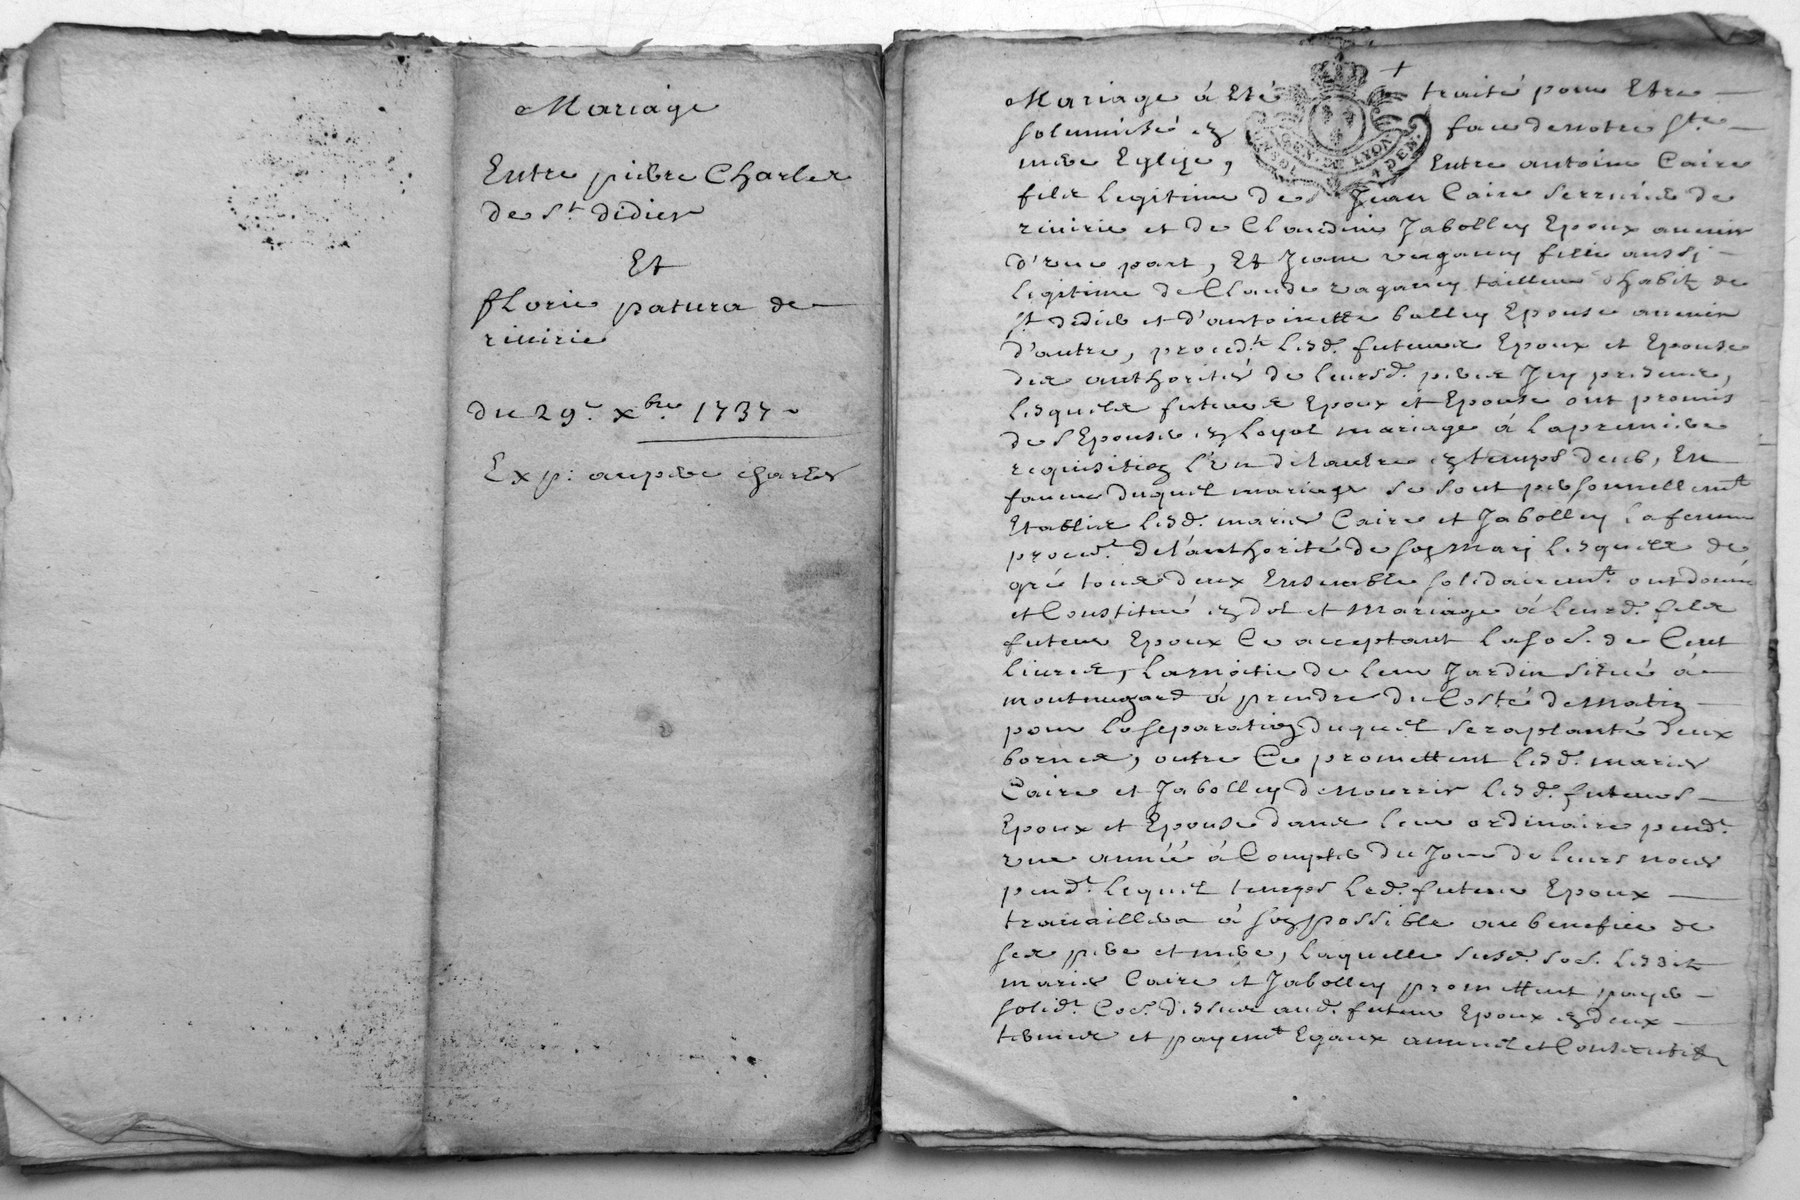 Mariage
Entre pierre Charles
de St didier
Et
florie patura de
riverie
du 29e xbre 1737
Exp: au pere charles
Mariage à Eté traité pour Etre
solemnisé en face de notre Ste
mere Eglize, Entre antoine Caire
fils legitime de Jean Caire serrurier de
riverie et de Claudine Jabolley Epoux avenir
d'une part, Et Jeane vaganey fille aussi
legitime de Claude vaganey tailleur d'habitz de
St didier et d'antoinette balley Epouse avenir
d'autre, proced.t lesd. futeurs Epoux et Epouse
des authorités de leursd. peres Icy presents,
lesquels futeurs Epoux et Epouse ont promis
de s'Epouser en loyal mariage à la premiere
requisition l'un de lautre en temps deub, En
faveur duquel mariage se sont personnellem.t
Etablis lesd. maries Caire et Jabolley la femme
proced.t de l'authorité de son Mary lesquels de
gré tous deux Ensemble solidairem.t ont donné
et Constitué en dot et Mariage à leurd. fils
futeur Epoux Ce acceptant la so.e de Cent
livres, la moitié de leur Jardin situé à
à prendre du Costé de Matin
pour la separation duquel sera planté deux
bornes, outre Ce promettent lesd. maries
Caire et Jabolley de Nourrir lesd. futeurs
Epoux et Epouse dans leur ordinaire pend.t
une année à Compter du Jour de leurs noces
pend.t lequel temps led. futeur Epoux
travaillera à son possible au benefice de
ses pere et mere, laquelle susd. so.e lesdits
maries Caire et Jabolley promettent payer
solid.t Co.e dessus aud. futeur Epoux en deux
termes et payem.t Egaux annuel et Consecutifs